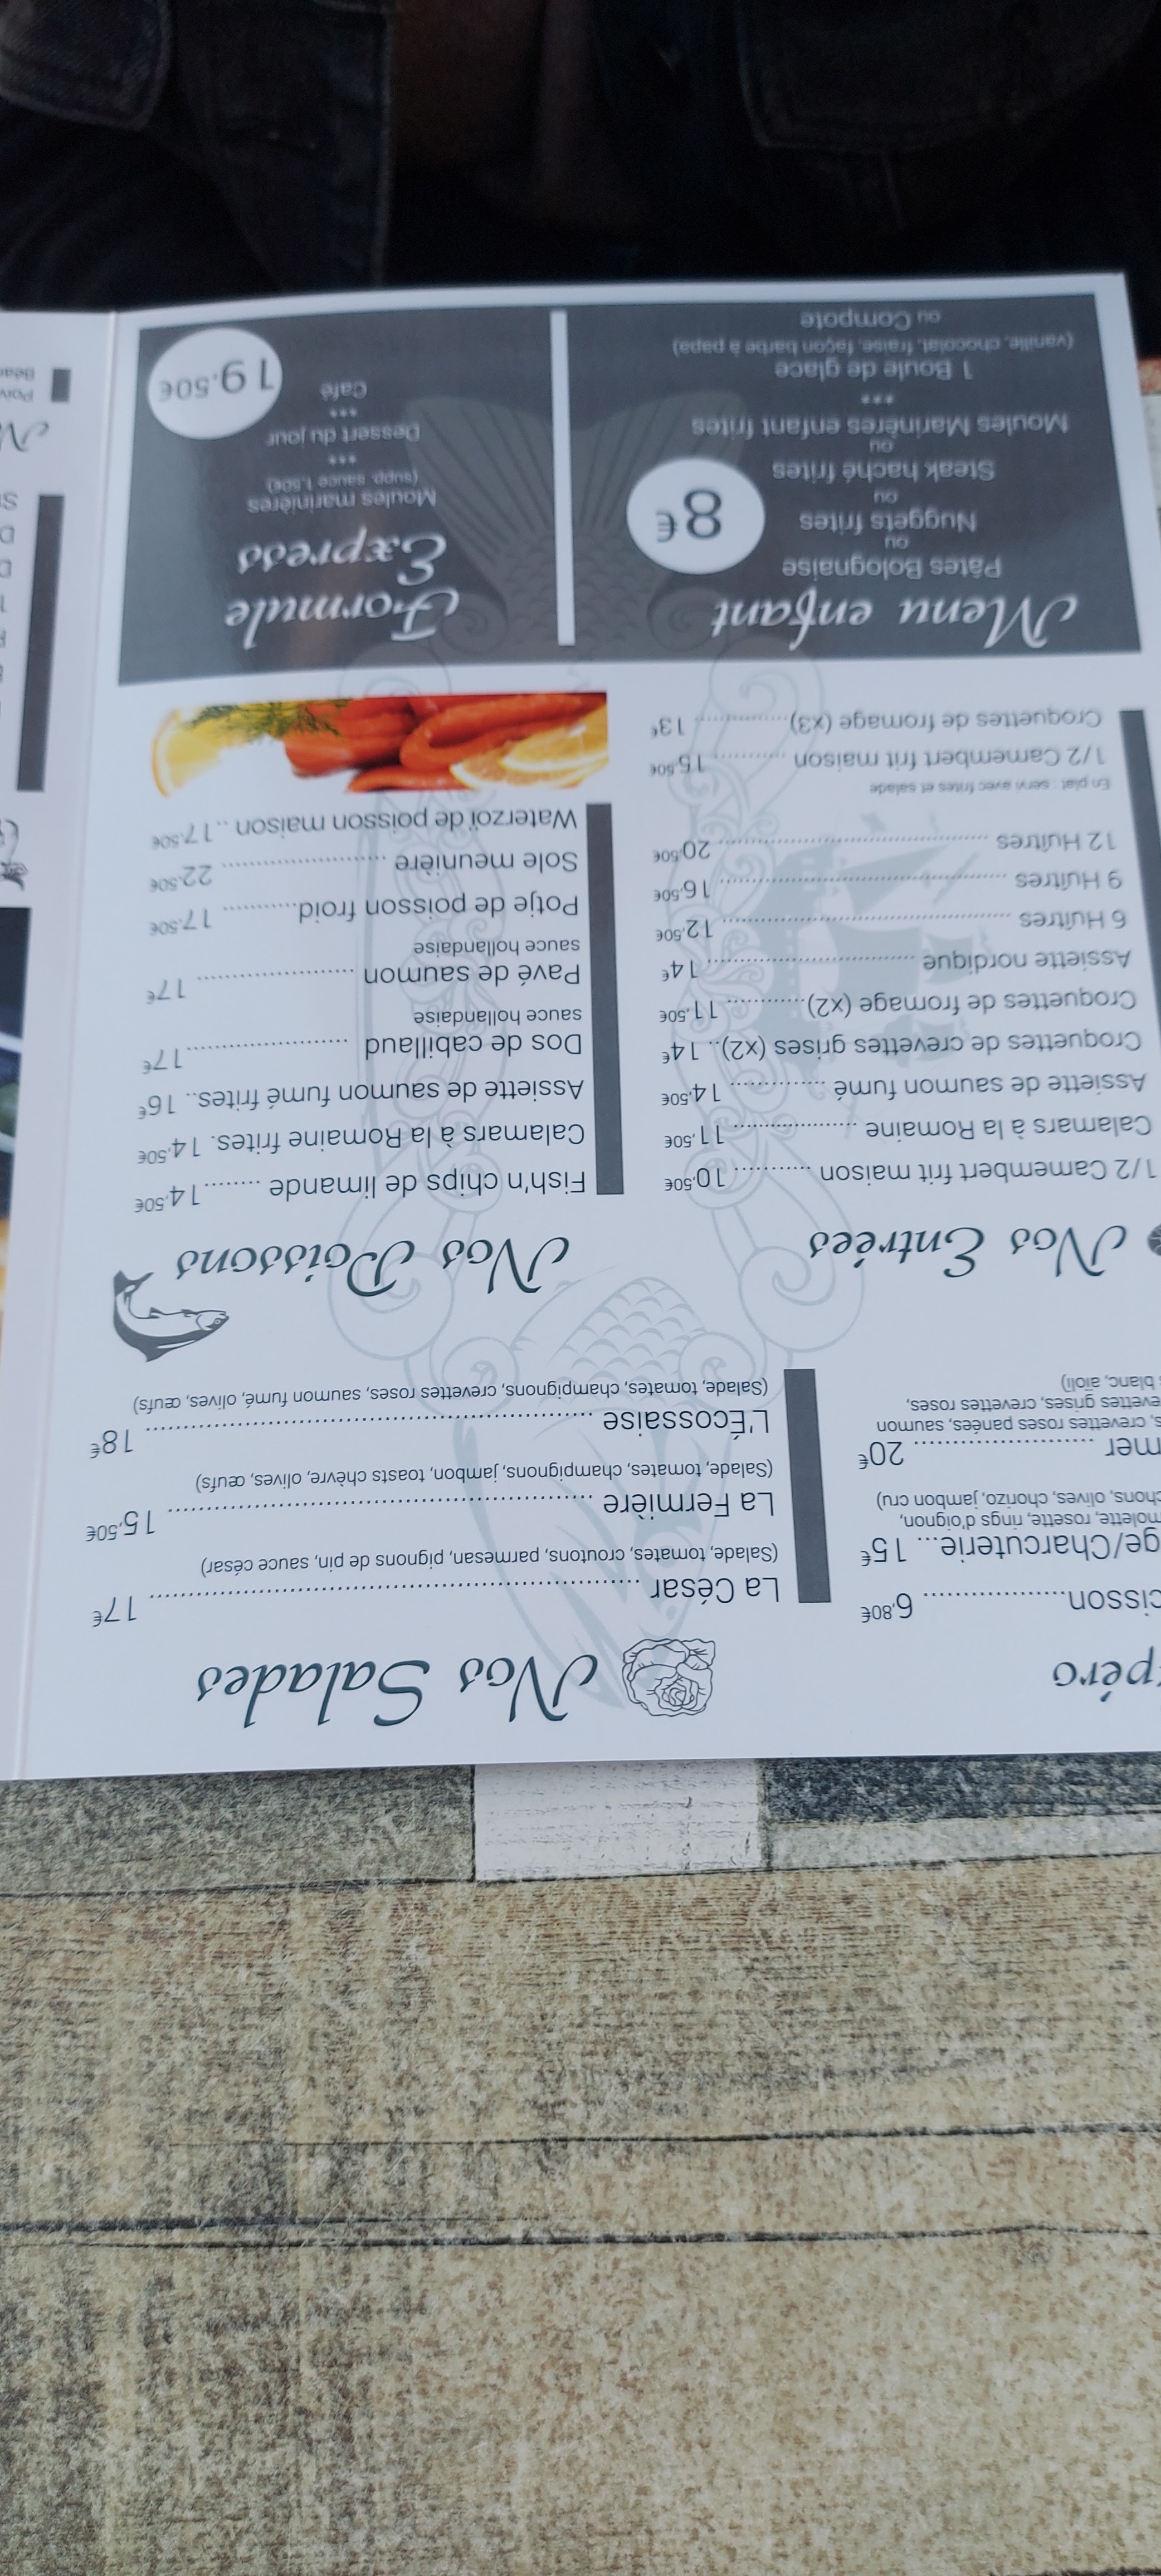 péro
cisson.................... 6,80€
ge/Charcuterie... 15€
molette, rosette, rings d'oignon,
chons, olives, chorizo, jambon cru)
mer ........................... 20€
s, crevettes roses panées, saumon
evettes grises, crevettes roses,
blanc, aïoli)
Nos Salades
La César ........................................ 17€
(Salade, tomates, croutons, parmesan, pignons de pin, sauce césar)
La Fermière ........................................ 15,50€
(Salade, tomates, champignons, jambon, toasts chèvre, olives, œufs)
L'Écossaise ........................................ 18€
(Salade, tomates, champignons, crevettes roses, saumon fumé, olives, œufs)
Nos Entrées
1/2 Camembert frit maison ........... 10,50€
Calamars à la Romaine .................. 11,50€
Assiette de saumon fumé .............. 14,50€
Croquettes de crevettes grises (x2).. 14€
Croquettes de fromage (x2)............ 11,50€
Assiette nordique ............................ 14€
6 Huîtres ........................................ 12,50€
9 Huîtres ........................................ 16,50€
12 Huîtres ........................................ 20,50€
En plat : servi avec frites et salade
1/2 Camembert frit maison ........... 15,50€
Croquettes de fromage (x3)............... 13€
Nos Poissons
Fish'n chips de limande .........14,50€
Calamars à la Romaine frites. 14,50€
Assiette de saumon fumé frites.. 16€
Dos de cabillaud ........................17€
sauce hollandaise
Pavé de saumon ....................... 17€
sauce hollandaise
Potje de poisson froid............ 17,50€
Sole meunière ......................... 22,50€
Waterzoï de poisson maison ..17,50€
Menu enfant
Pâtes Bolognaise
ou
Nuggets frites
ou
Steak haché frites
ou
Moules Marinères enfant frites
***
1 Boule de glace
(vanille, chocolat, fraise, façon barbe à papa)
ou Compote
8€
Formule
Express
Moules marinières
(supp. sauce 1,50€)
***
Dessert du jour
***
Café
19,50€